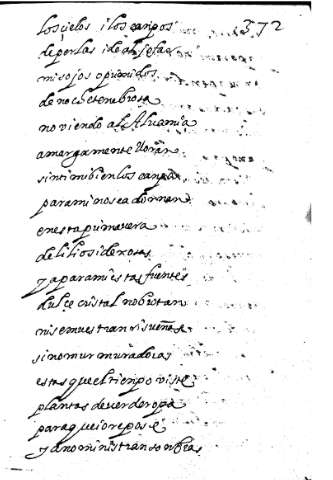 372
los cielos i los canpos
de perlas i de aljofar
mis ojos oprimidos
de noche tenebrosa
no viendo al Alua mia
amargamente lloran
sin ti mi bien los canpos
para mi no se adornan
en esta primavera
de lilios i de rosas
ya para mi estas fuentes
dulce cristal no brotan
ni se muestran risueñas
sino murmuradoras
estas que el tienpo viste
plantas de verde ropa
para que io repose
ya no ministran sonbras